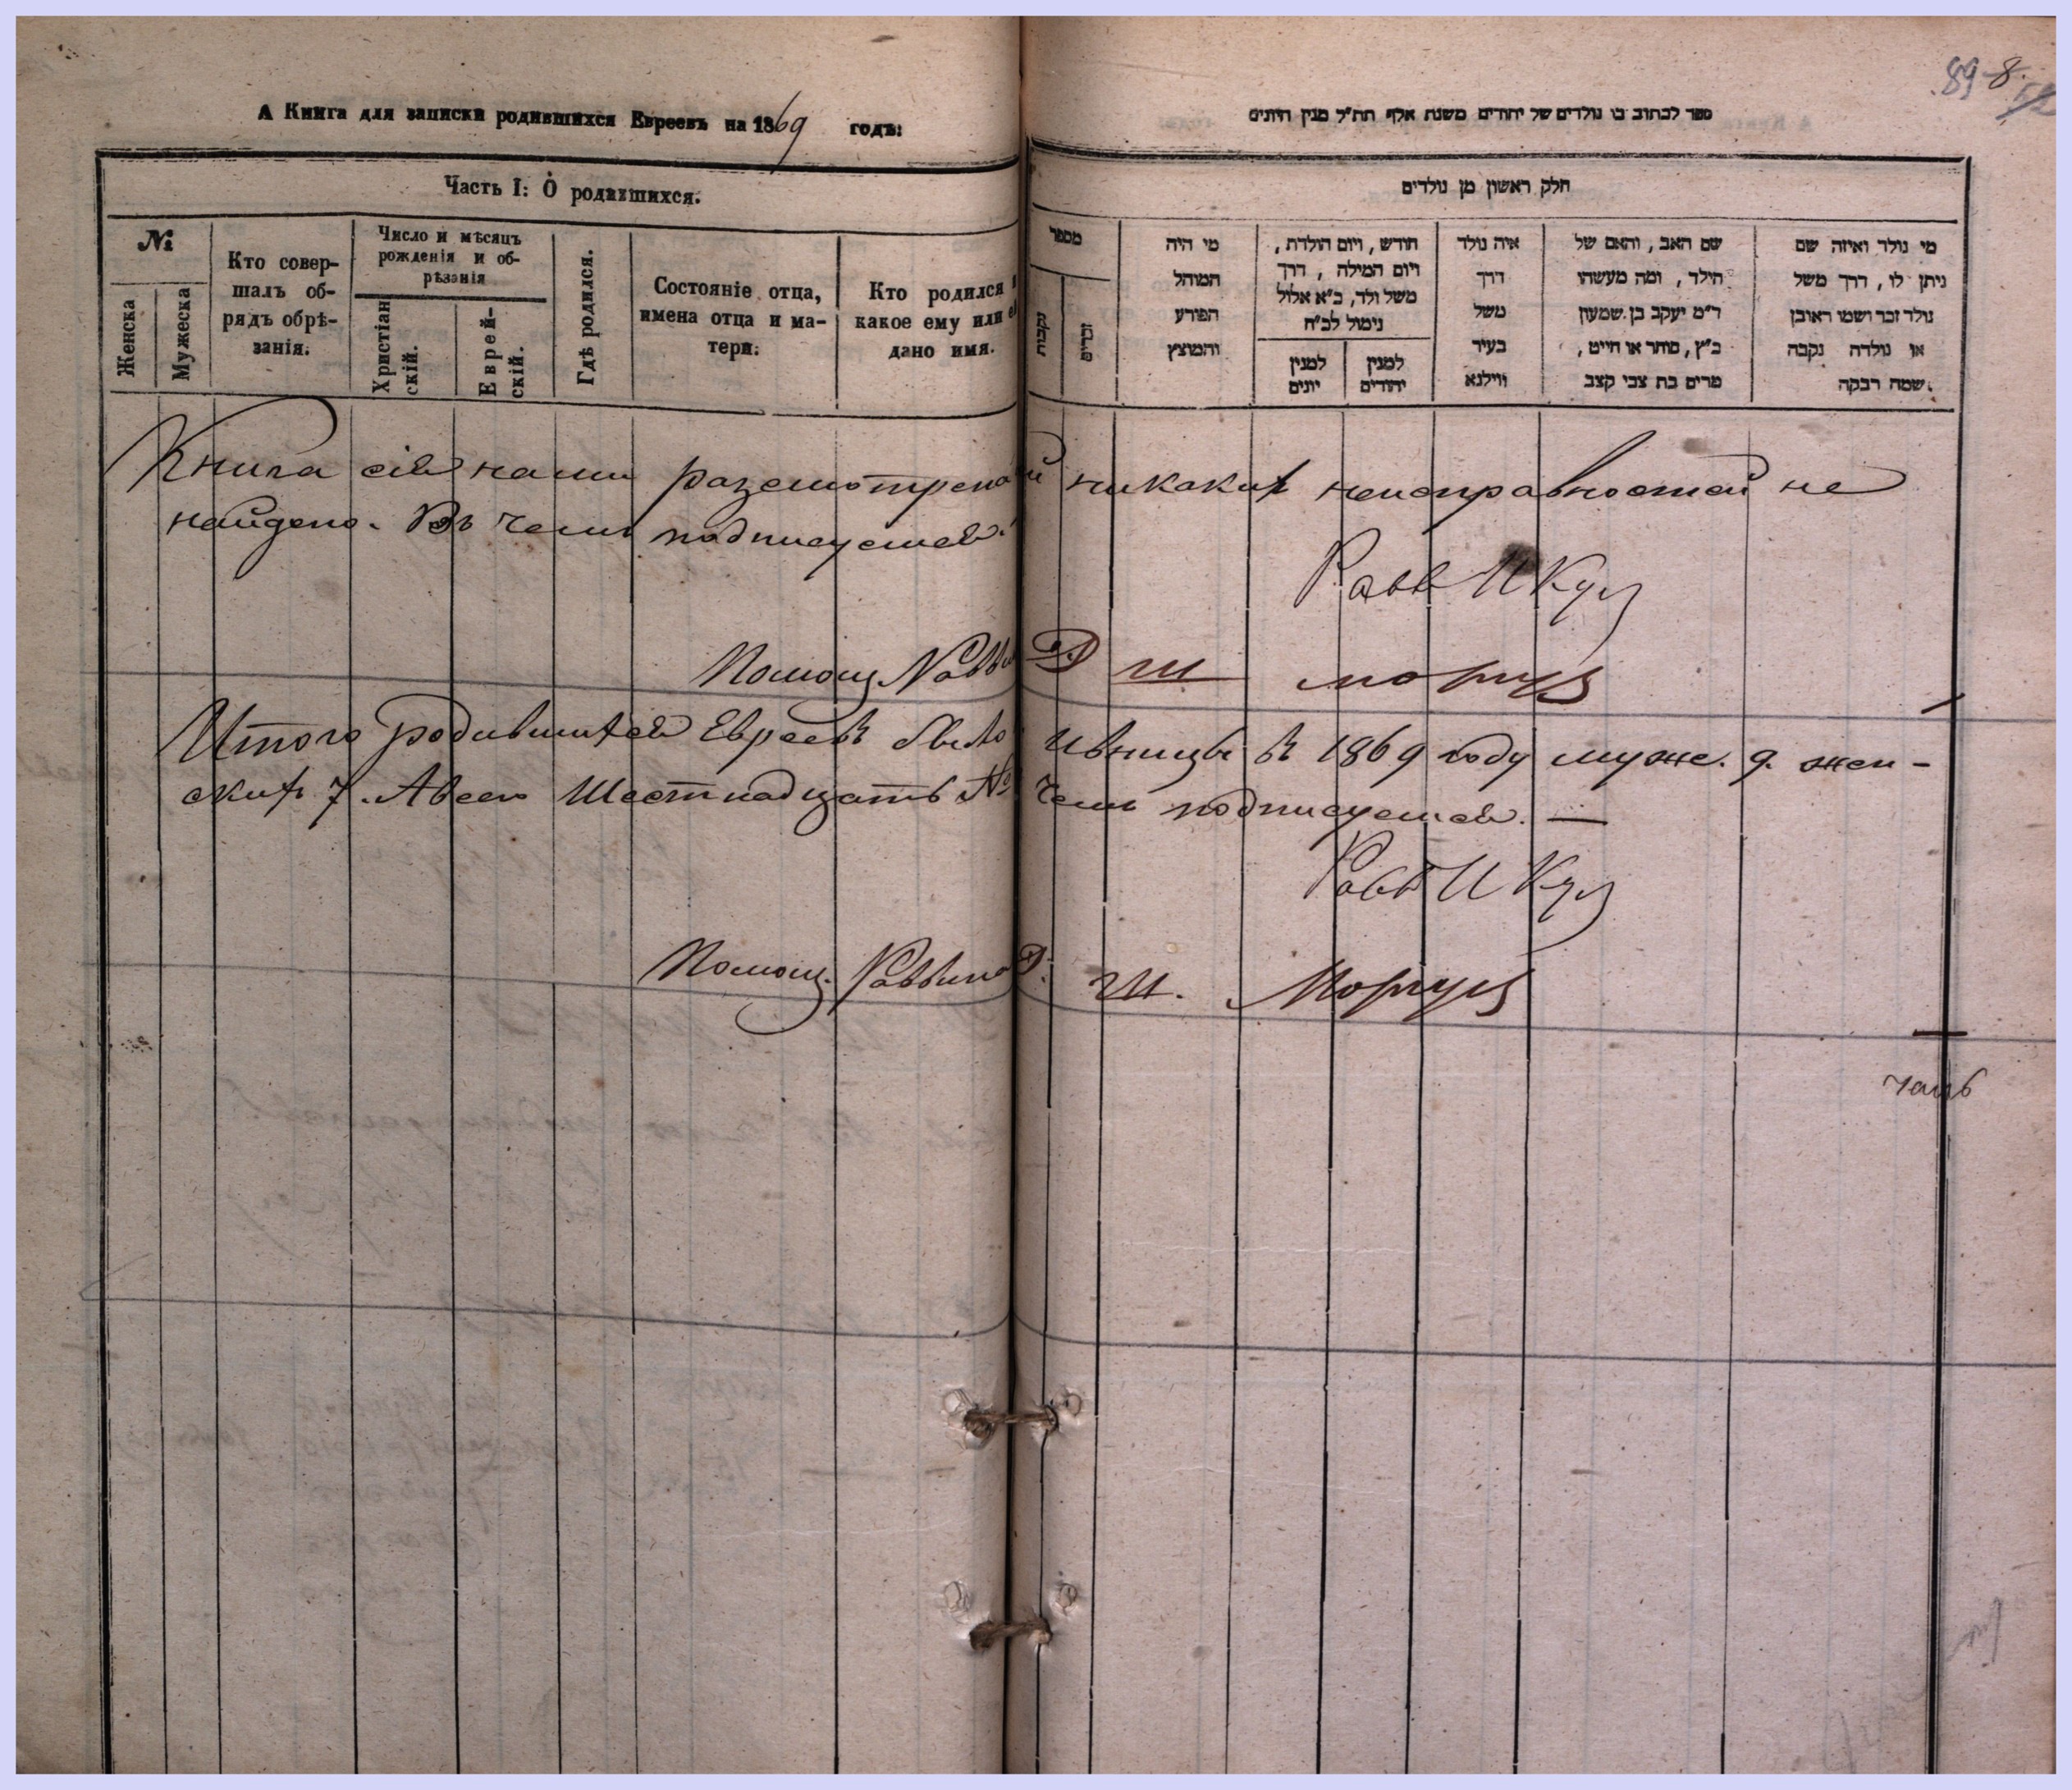 А Книга для записки родившихся Евреевъ на 1869 годъ:
Часть I: О родившихся.
№
Женска
Мужеска
Кто совер-
шалъ об-
рядъ обрѣ-
занія.
Число и мѣсяцъ
рожденія и об-
рѣзанія
Христіан
скій.
Еврей-
скій.
Гдѣ родился.
Состояніе отца,
имена отца и ма-
тери.
Кто родился и
какое ему или ей
дано имя.
89 8.
ספר לכתוב בו נולדים של יהודים משנת אלף תת״ל מנין היונים
חלק ראשון מן נולדים
מספר
נקבות
זכרים
מי היה
המוהל
הפורע
והמוצץ
חודש, ויום הולדת,
ויום המילה, דרך
משל ולד, כ״א אלול
נימול לכ״ח
למנין
יונים
למנין
יהודים
איה נולד
דרך
משל
בעיר
ווילנא
שם האב, והאם של
הילד, ומה מעשהו
ד״מ יעקב בן שמעון
כ״ץ, סוחר או חייט,
מרים בת צבי קצב
מי נולד ואיזה שם
ניתן לו, דרך משל
נולד זכר ושמו ראובן
או נולדה נקבה
שמה רבקה.
Книга сія нами разсмотрена и никаких неисправностей не
найдено. Въ чемъ подписуемся.
Равв И Куц
Помощ Равви Ш Моргул
Итого родившихся Евреевъ было Ивницы въ 1869 году муже. 9. жен-
скихъ 7. Авсего Шестнадцать чемъ подписуемся. —
Равв И Куц
Помощ. Раввина Ш. Моргул